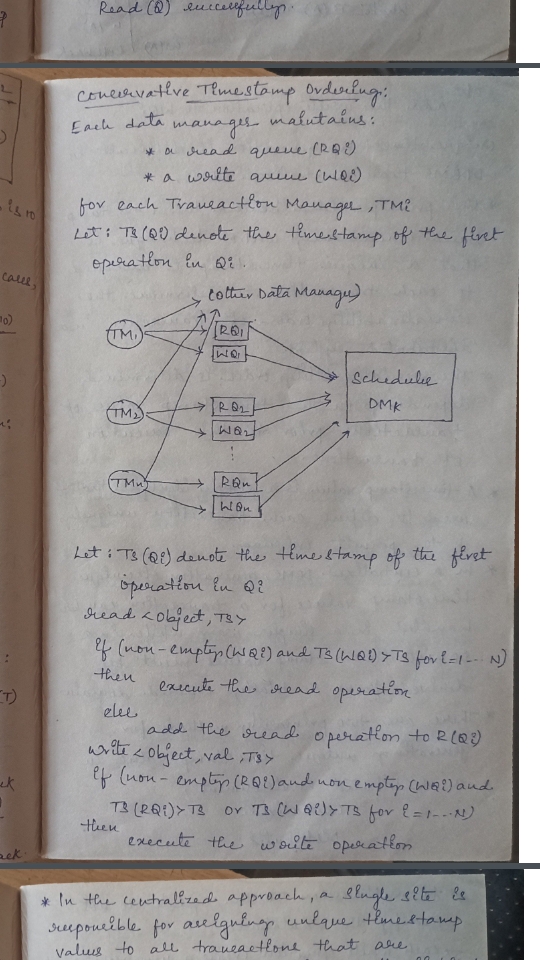 Read (Q) successfully.
Conservative Timestamp Ordering:
Each data manager maintains:
* a read queue (RQi)
* a write queue (WQi)
for each Transaction Manager, TMi
Let: TS(Qi) denote the timestamp of the first
operation in Qi.
(Other Data Manager)
TM1
RQ1
WQ1
Scheduler
DMk
TM2
RQ2
WQ2
TMn
RQn
WQn
Let: TS(Qi) denote the timestamp of the first
operation in Qi
read <object, TS>
if (non-empty(WQi) and TS(WQi)>TS for i=1--- N)
then
execute the read operation
else
add the read operation to R(Qi)
write <object, val, TS>
if (non- empty (RQi) and non empty (WQi) and
TS(RQi)>TS or TS(WQi)>TS for i=1---N)
then
execute the write operation
* In the centralized approach, a single site is
responsible for assigning unique timestamp
values to all transactions that are